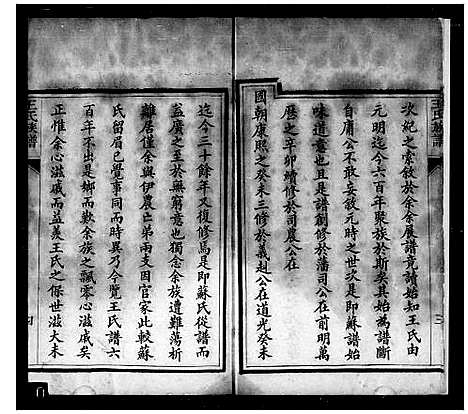 次紀之索敘於余余展譜竟讀始知王氏由
元明迄今六百年聚族於斯矣其始為譜斷
自庸公不敢妄敘元時之世次是即蘇譜始
味道意也且是譜創修於藩司公在前明萬
曆之辛卯續修於司農公在
國朝康熙之癸未三修於義赳公在道光癸未
迄今三十餘年又復修焉是即蘇氏從譜而
益廣之至於無窮意也獨念余族遭難蕩析
離居僅余與伊農亡弟兩支因官家此較蘇
氏留眉已覺事同而時異乃今覽王氏譜六
百年不出是鄉而歎余族之飄零心滋戚矣
正惟余心滋戚而益羨王氏之保世滋大未
王氏族譜
王氏族譜